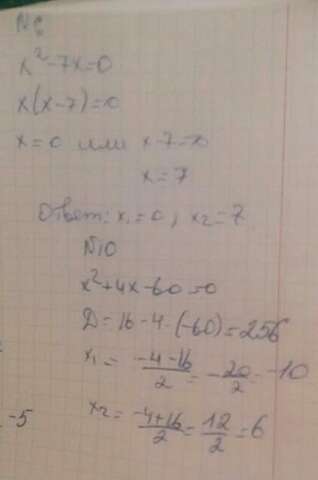 x²-7x=0
x(x-7)=0
x=0 или x-7=0
x=7
Ответ: x₁=0; x₂=7
N10
x²+4x-60=0
D=16-4·(-60)=256
x₁= (-4-16)/2 = -20/2 = -10
x₂= (-4+16)/2 = 12/2 = 6
-5